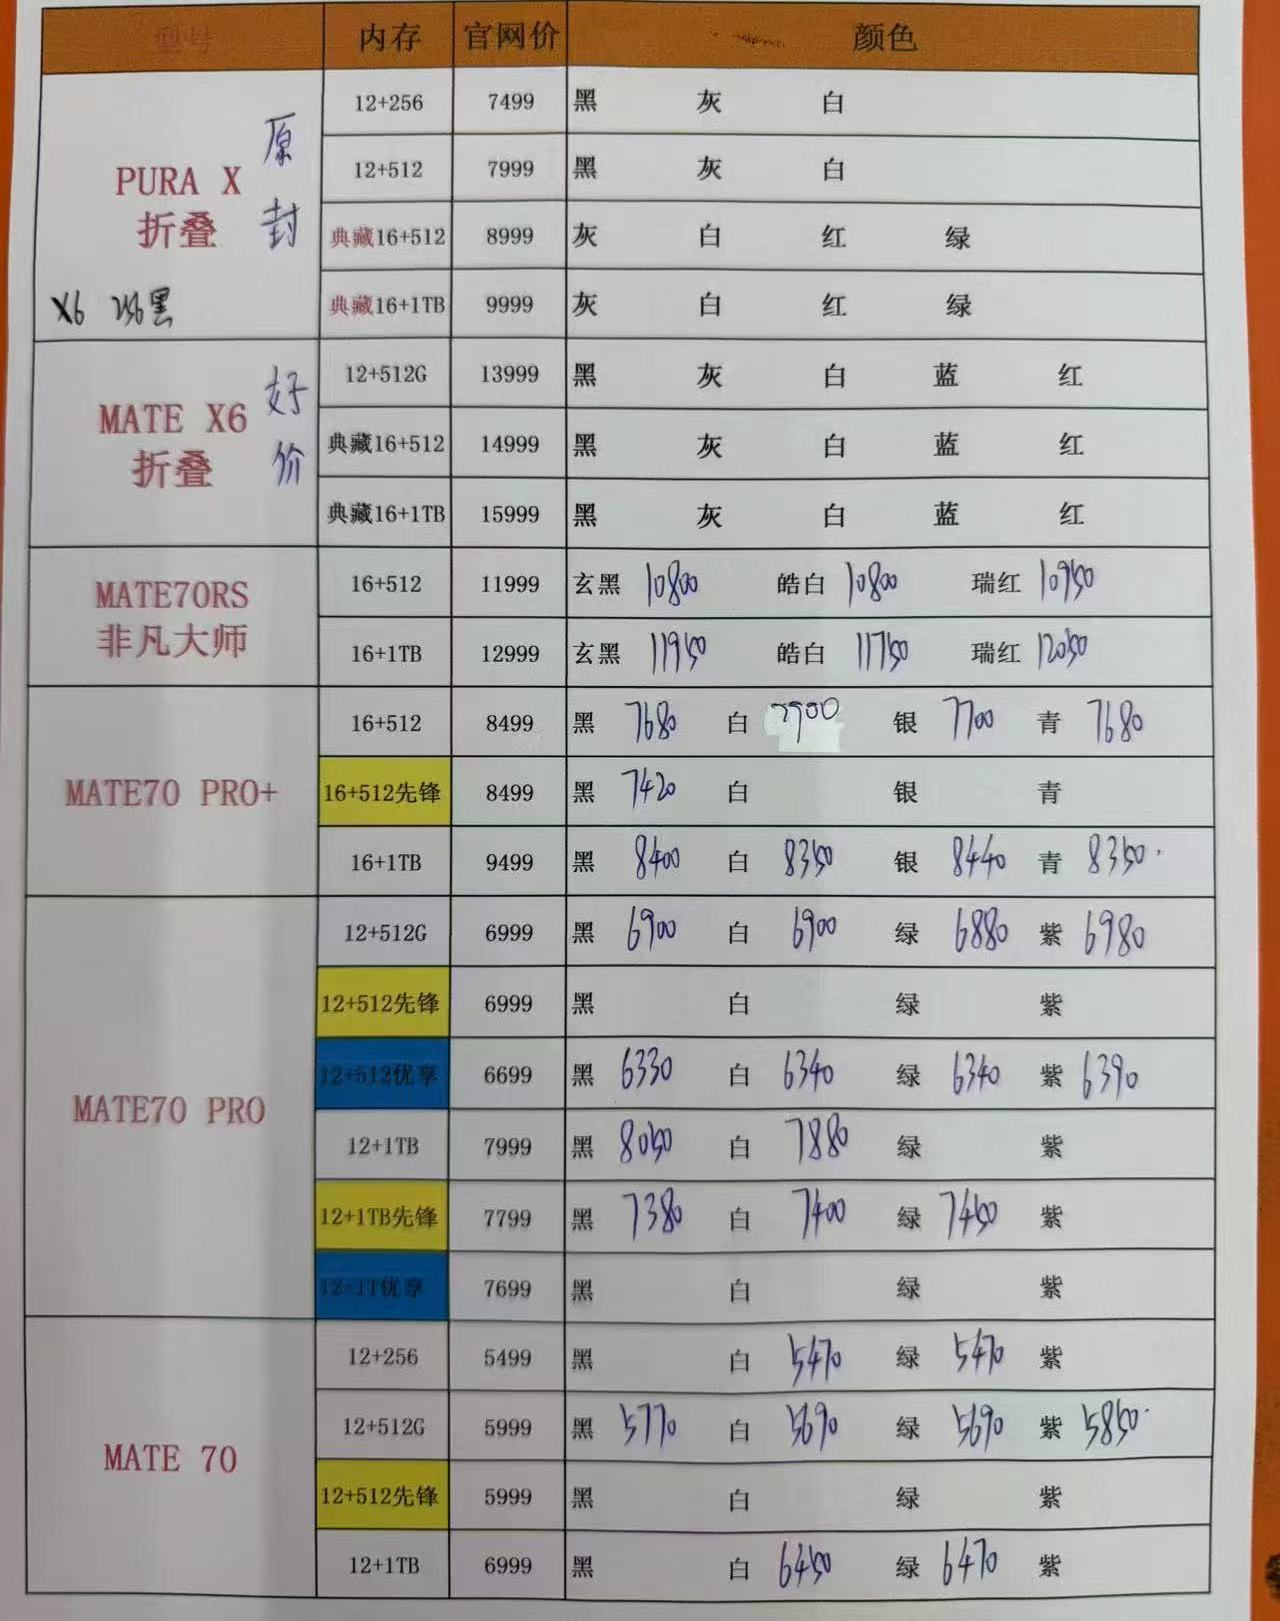 型号 内存 官网价 颜色
PURA X 折叠 原封
X6 256黑
12+256 7499 黑 灰 白
12+512 7999 黑 灰 白
典藏16+512 8999 灰 白 红 绿
典藏16+1TB 9999 灰 白 红 绿
MATE X6 折叠 好价
12+512G 13999 黑 灰 白 蓝 红
典藏16+512 14999 黑 灰 白 蓝 红
典藏16+1TB 15999 黑 灰 白 蓝 红
MATE70RS 非凡大师
16+512 11999 玄黑 10800 皓白 10800 瑞红 10950
16+1TB 12999 玄黑 11950 皓白 11750 瑞红 12050
MATE70 PRO+
16+512 8499 黑 7680 白 7900 银 7700 青 7680
16+512先锋 8499 黑 7420 白 银 青
16+1TB 9499 黑 8400 白 8350 银 8440 青 8350
MATE70 PRO
12+512G 6999 黑 6900 白 6900 绿 6880 紫 6980
12+512先锋 6999 黑 白 绿 紫
12+512优享 6699 黑 6330 白 6340 绿 6340 紫 6390
12+1TB 7999 黑 8050 白 7880 绿 紫
12+1TB先锋 7799 黑 7380 白 7400 绿 7450 紫
12+1T优享 7699 黑 白 绿 紫
MATE 70
12+256 5499 黑 白 5470 绿 5470 紫
12+512G 5999 黑 5770 白 5690 绿 5690 紫 5850
12+512先锋 5999 黑 白 绿 紫
12+1TB 6999 黑 白 6450 绿 6470 紫